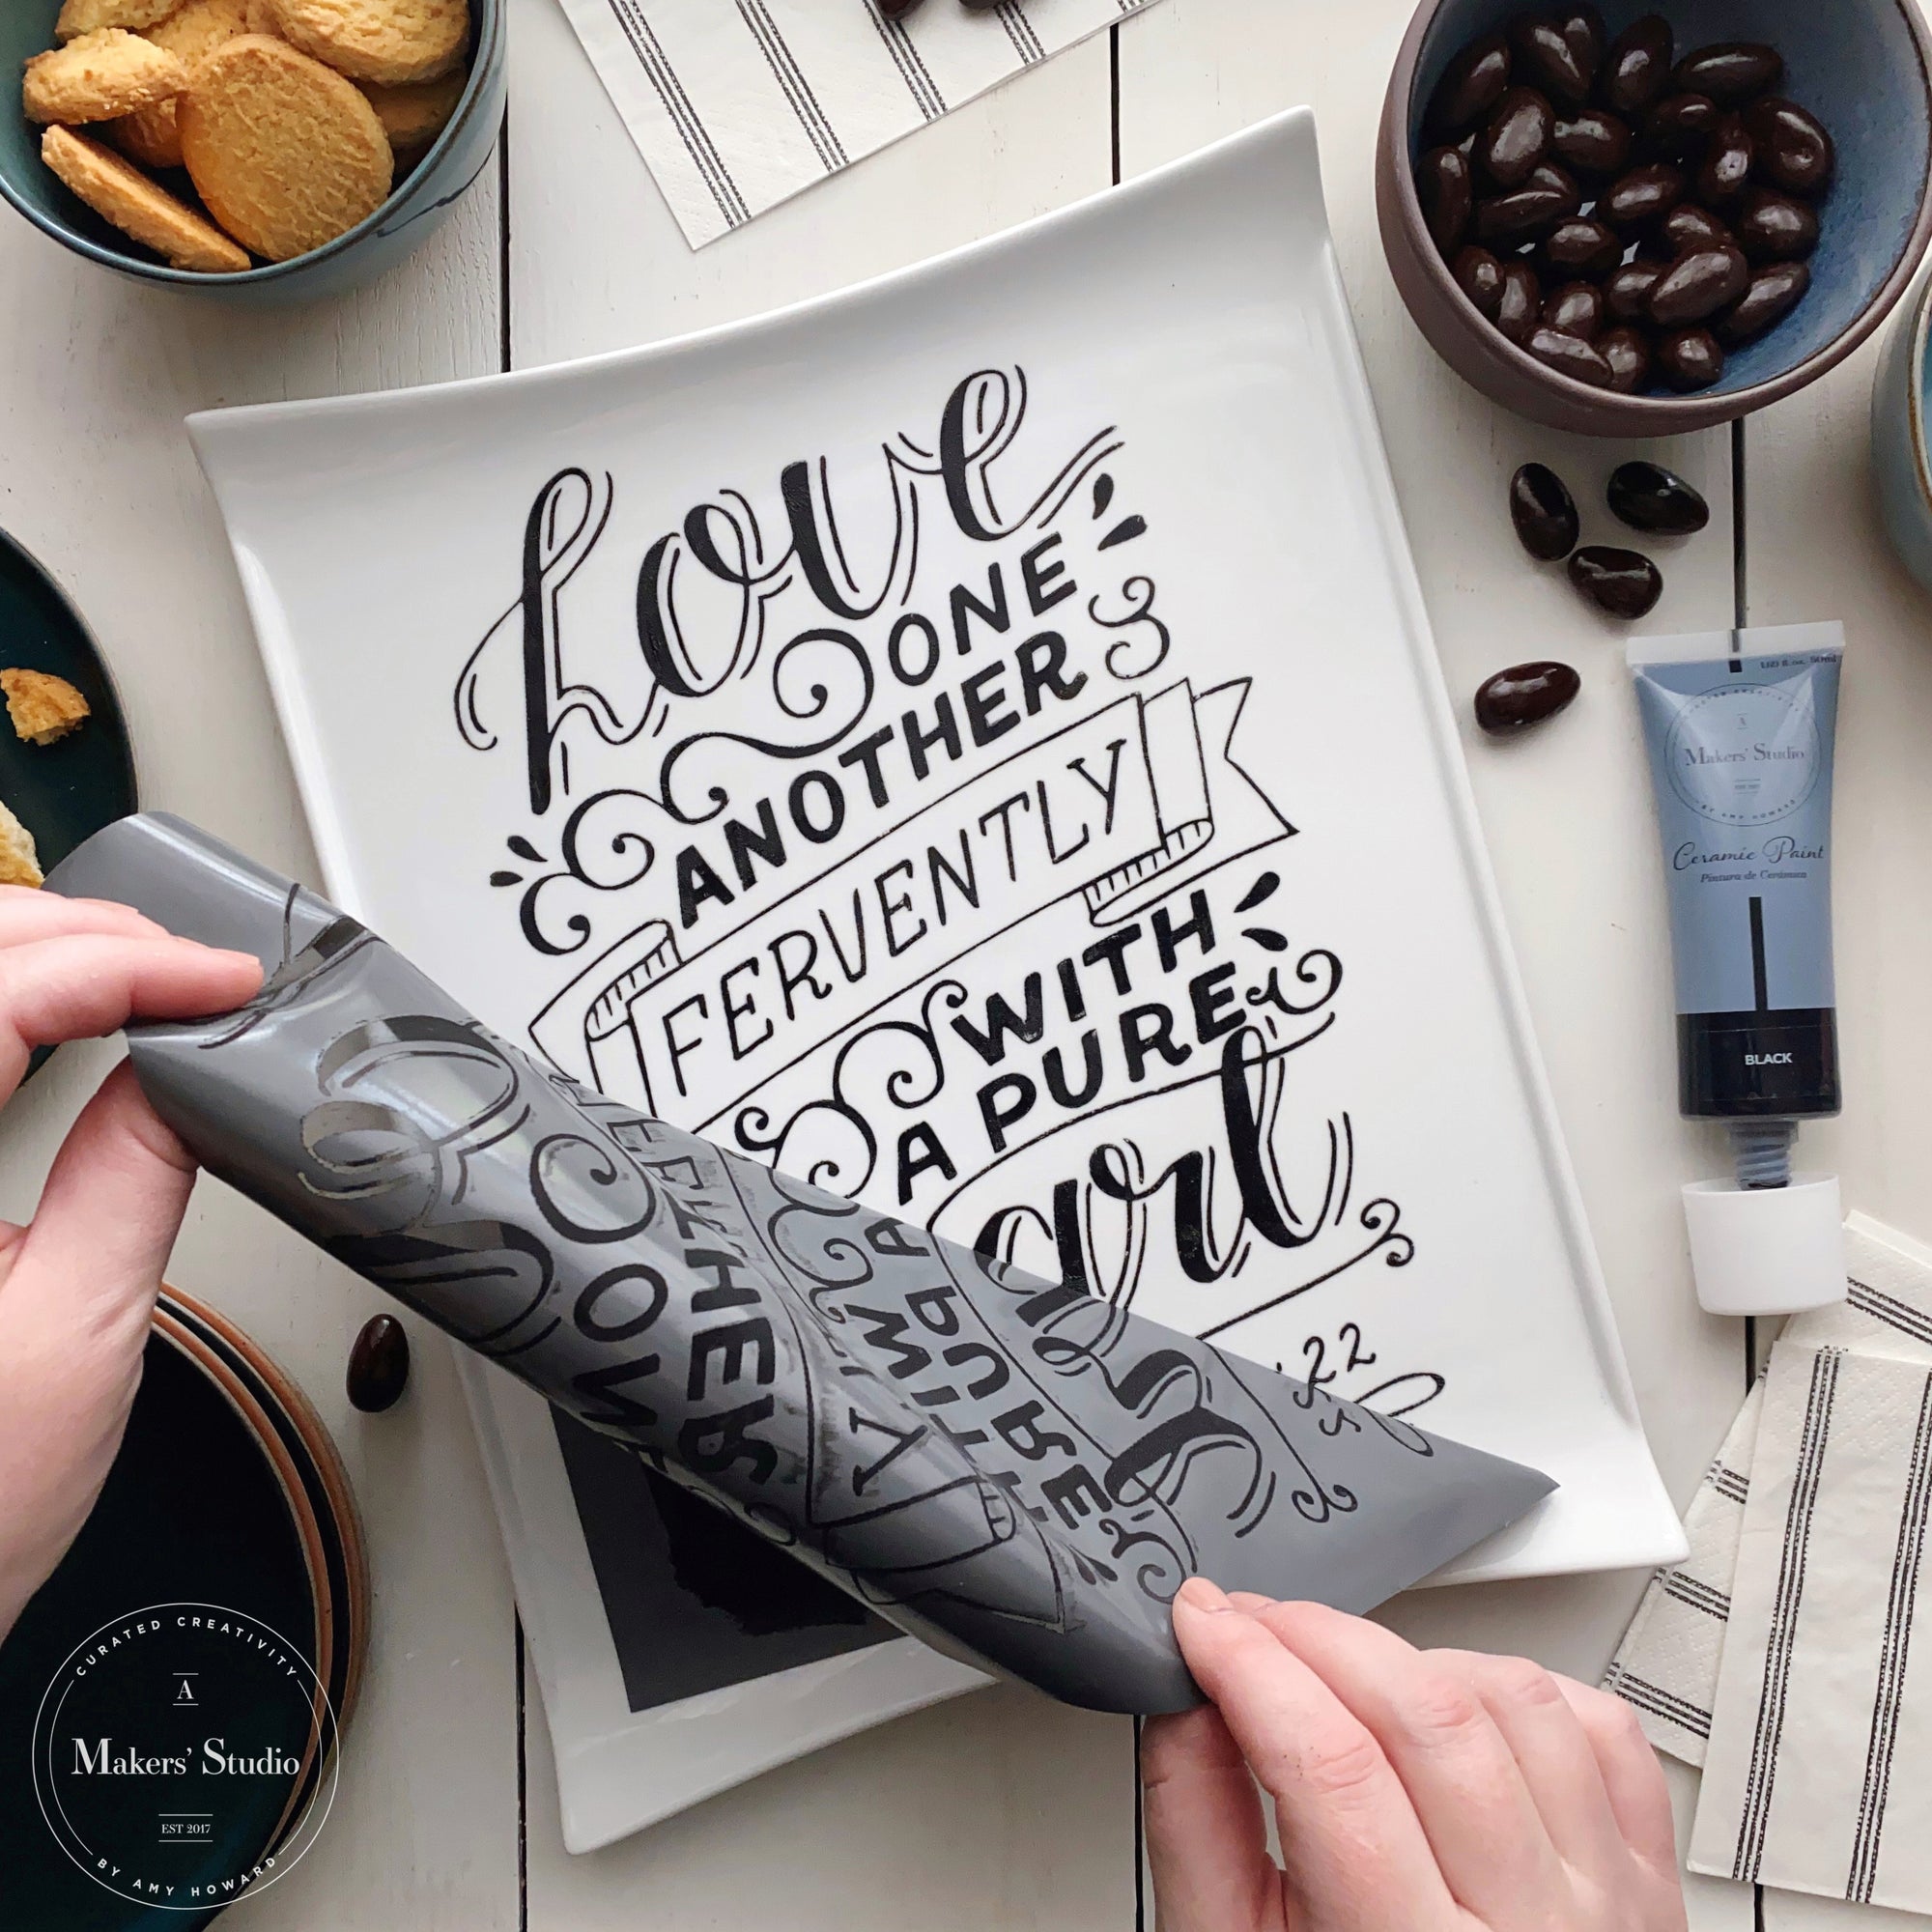 Love
ONE
ANOTHER
FERVENTLY
WITH
A PURE
:22
1.69 fl. oz. 50ml
A
Makers' Studio
EST 2017
BY AMY HOWARD
Ceramic Paint
Pintura de Cerámica
BLACK
CURATED CREATIVITY
A
Makers' Studio
EST 2017
BY AMY HOWARD